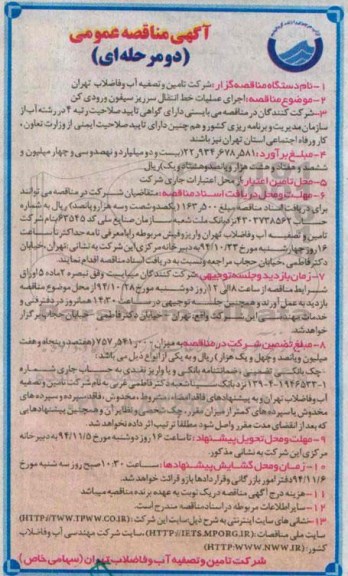 آگهی مناقصه عمومی
(دو مرحله ای)
۱-نام دستگاه مناقصه گزار: شرکت تامین و تصفیه آب و فاضلاب تهران
۲-موضوع مناقصه: اجرای عملیات خط انتقال سرریز سیفون ورودی کن
۳-شرکت کنندگان در مناقصه می بایستی دارای گواهی تایید صلاحیت رتبه ۴ در رشته آب از
سازمان مدیریت و برنامه ریزی کشور و هم چنین دارای تایید صلاحیت ایمنی از وزارت تعاون،
کار و رفاه اجتماعی استان تهران باشند
۴-مبلغ برآورد: ۲۲,۹۳۴,۶۷۸,۵۸۱ (بیست و دو میلیارد و نهصد و سی و چهار میلیون و
ششصد و هفتاد و هشت هزار و پانصد و هشتاد و یک) ریال
۵-محل تامین اعتبار: از محل اعتبارات جاری شرکت
۶-مهلت و محل دریافت اسناد مناقصه: متقاضیان شرکت در مناقصه می توانند
برای دریافت اسناد مناقصه مبلغ ۱۶۳,۵۰۰ (یکصد و شصت و سه هزار و پانصد) ریال به شماره
حساب ۴۳۰۳۷۳۸۵۶۲ نزد بانک ملت شعبه سازمان صنایع ملی کد ۶۳۵۴۵ بنام شرکت
تامین و تصفیه آب و فاضلاب تهران واریز و فیش مربوطه را با معرفی نامه حداکثر تا ساعت
۱۶ روز چهارشنبه مورخ ۹۴/۱۰/۲۳ به دبیرخانه مرکزی این شرکت به نشانی تهران، خیابان
دکتر فاطمی، خیابان حجاب مراجعه و نسبت به دریافت اسناد مناقصه اقدام نمایند.
۷-زمان بازدید و جلسه توجیهی: شرکت کنندگان میبایست وفق تبصره ۲ ماده ۵ اوراق
شرایط مناقصه از ساعت ۸ الی ۱۲ روز دوشنبه مورخ ۹۴/۱۰/۲۸ از محل موضوع مناقصه
بازدید به عمل آورند و همچنین جلسه توجیهی در ساعت ۱۴:۳۰ همانروز در دفتر فنی و
خدمات مهندسی این شرکت واقع تهران - خیابان دکتر فاطمی - خیابان حجاب برگزار
خواهد شد.
۸-مبلغ تضمین شرکت در مناقصه: به میزان ۷۵۷,۵۴۱,۰۰۰ (هفتصد و پنجاه و هفت
میلیون و پانصد و چهل و یک هزار) ریال و به یکی از انواع ذیل می باشد:
-چک بانکی تضمینی، ضمانتنامه بانکی و یا واریز نقدی به حساب جاری شماره
آب و فاضلاب تهران و به پیشنهادهای فاقد امضاء، مشروط، مخدوش، فاقد سپرده و سپرده های
مخدوش یا سپرده های کمتر از میزان مقرر، چک شخصی و نظایر آن و همچنین پیشنهادهایی
که بعد از انقضای مدت مقرر واصل شود مطلقا ترتیب اثر داده نخواهد شد.
۹-مهلت و محل تحویل پیشنهاد: تا ساعت ۱۶ روز دوشنبه مورخ ۹۴/۱۱/۵ به دبیرخانه
مرکزی این شرکت به نشانی مذکور
۱۰-زمان و محل گشایش پیشنهادها: ساعت ۱۰:۳۰ صبح روز سه شنبه مورخ
۹۴/۱۱/۶ دفتر امور بازرگانی و قراردادها باز و قرائت خواهد شد.
۱۱-هزینه درج آگهی مناقصه در یک نوبت به عهده برنده مناقصه میباشد
۱۲-سایر اطلاعات مربوطه در اسناد مناقصه مندرج است.
۱۳-نشانی های سایت اینترنتی به شرح ذیل سایت این شرکت: (HTTP://TWW.TPWW.CO.IR)
سایت ملی مناقصات: (HTTP://IETS.MPORG.IR) سایت شرکت مهندسی آب و فاضلاب
کشور: (HTTP:WWW.NWW.IR)
شرکت تامین و تصفیه آب و فاضلاب تهران (سهامی خاص)